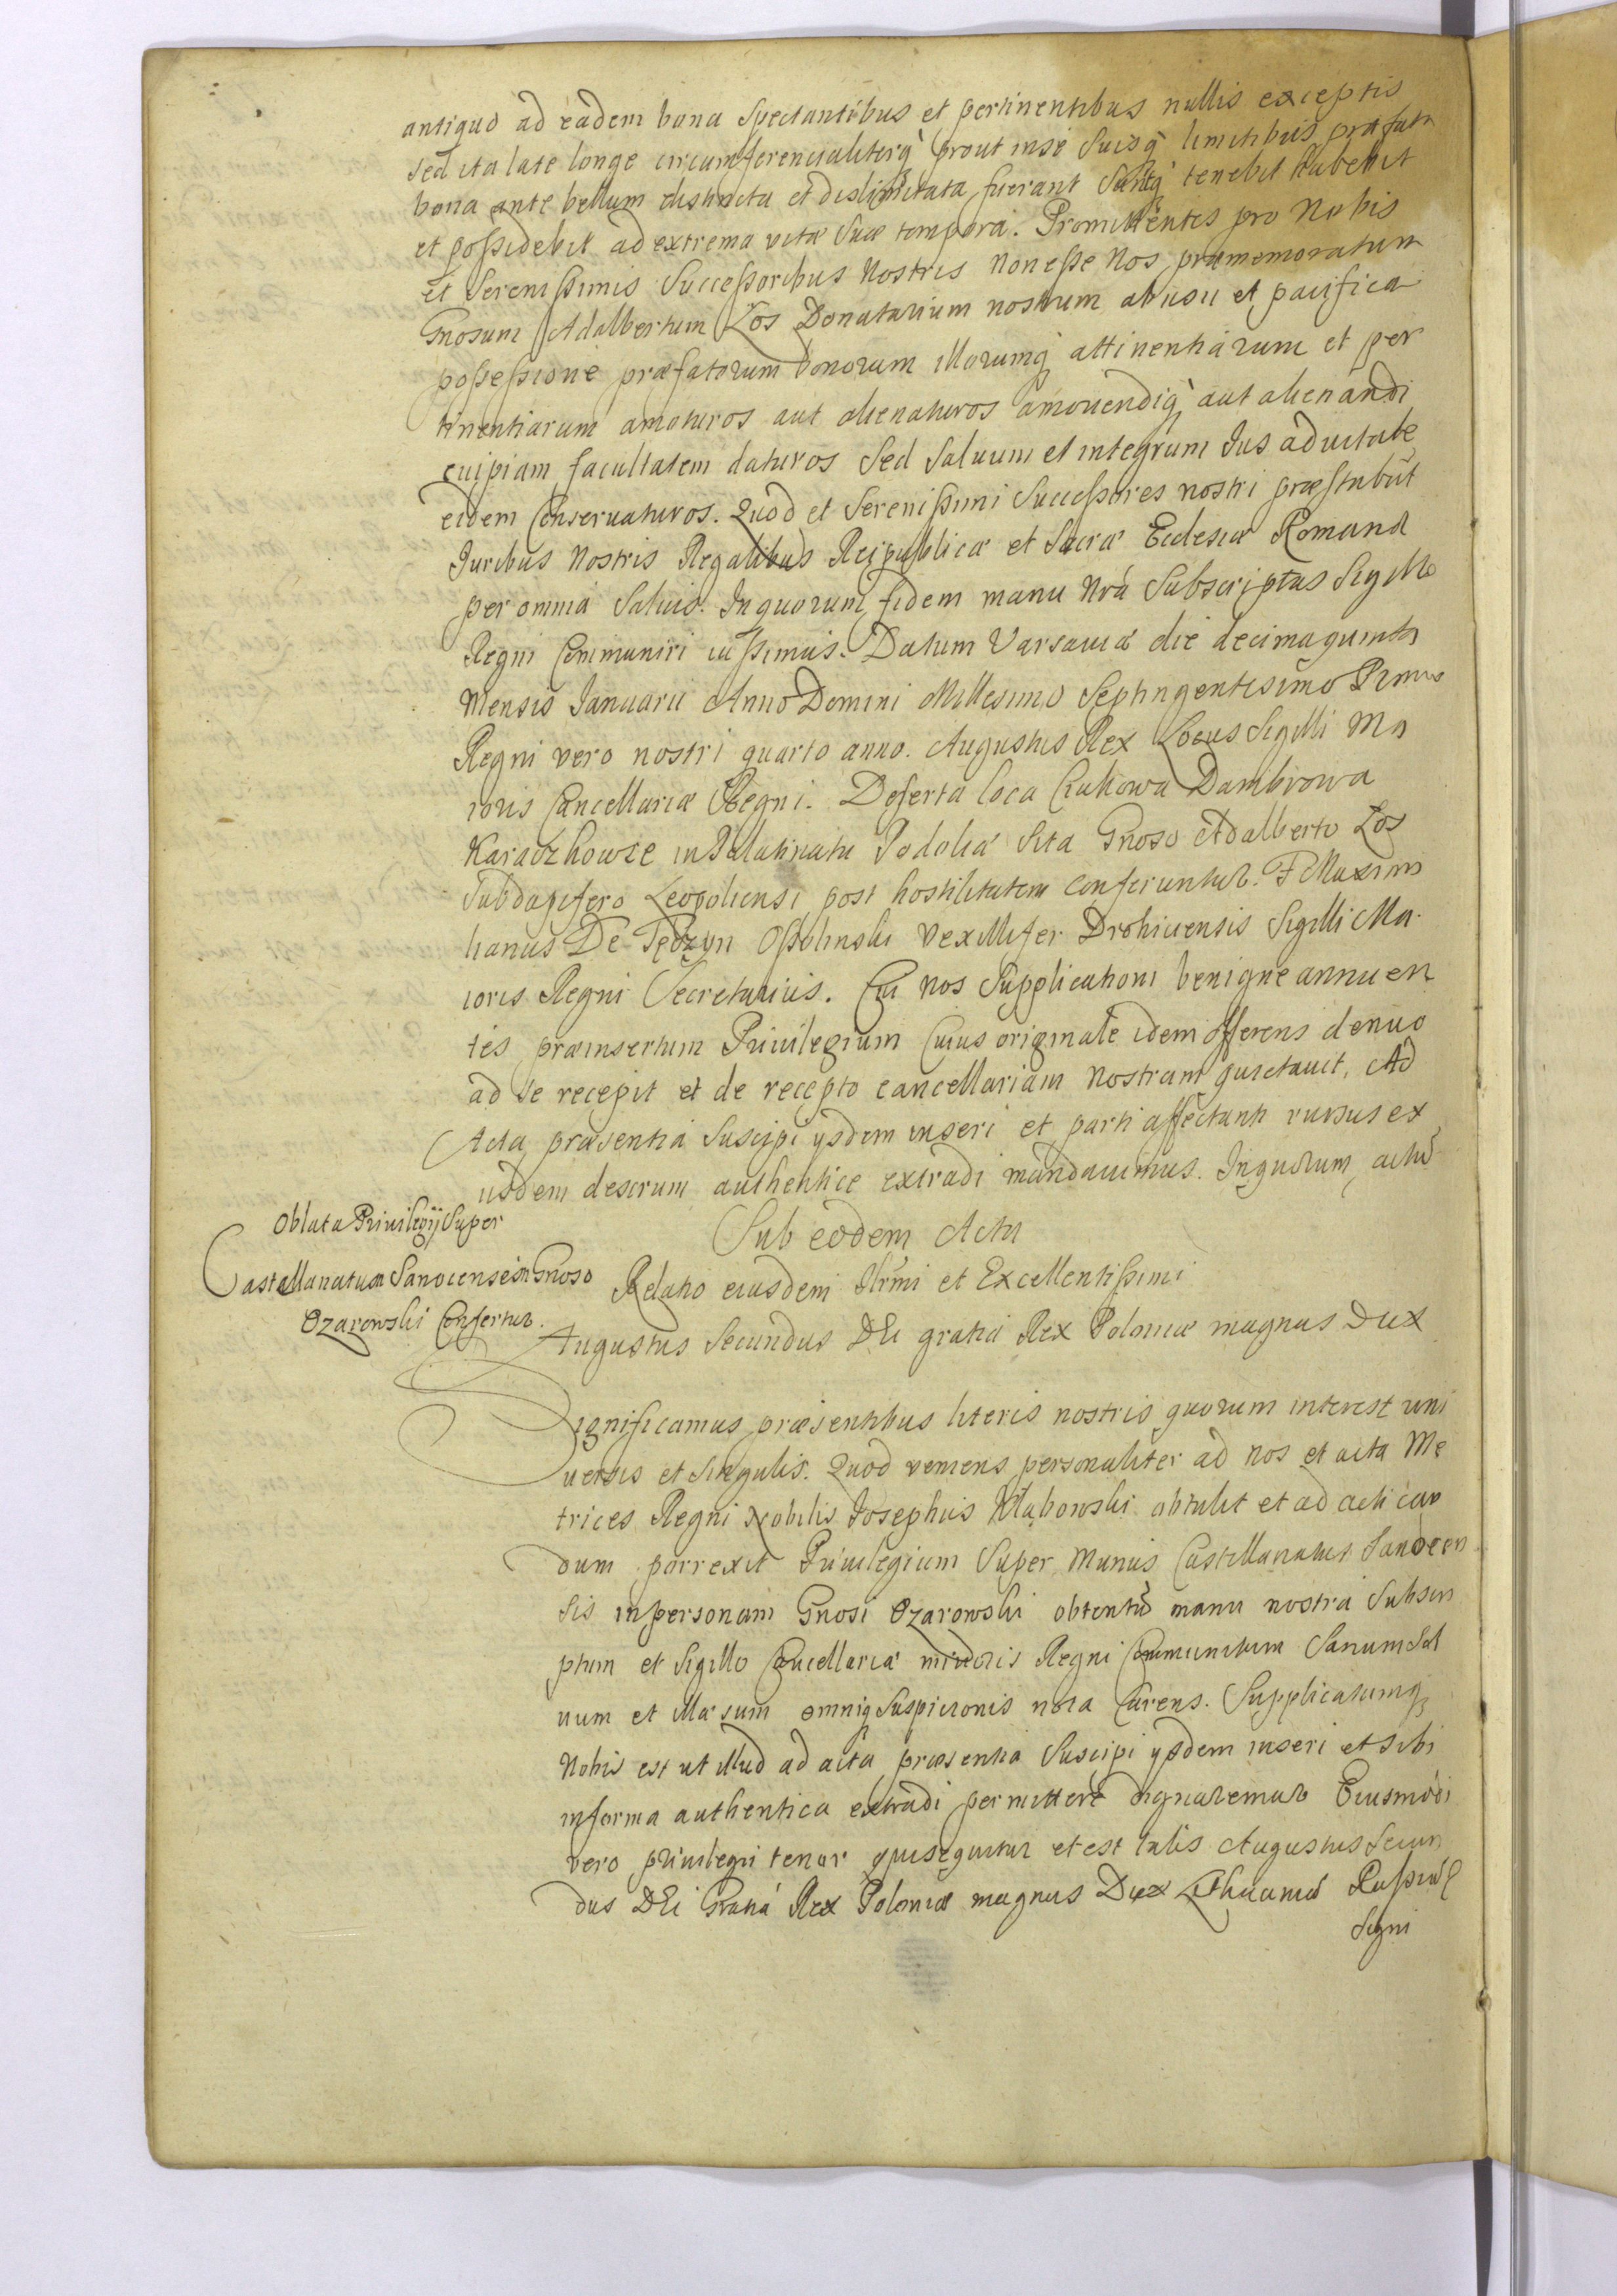 antiquo ad eadem bona spectantibus et pertinentibus nullis exceptis
sed ita late longe circumferencialiterq prout in se suisq limitibus præfata
bona ante bellum distincta et dislimitata fuerant suntq tenebit habebit
et possidebit ad extrema vitæ suæ tempora. Promittentes pro Nobis
et Serenissimis Successoribus Nostris non esse Nos præmemoratum
Gnosum Adalbertum Łos Donatarium nostrum ab usu et pacifica
possessione præfatorum bonorum illorumq attinentiarum et per
tinentiarum amoturos aut alienaturos amouendiq aut alienandi
cuipiam facultatem daturos sed saluum et integrum Ius aduitale
eidem Conseruaturos. Quod et Serenissimi Successores nostri præstabũt
Iuribus Nostris Regalibus Reipublicæ et Sacræ Eclesiæ Romanæ
per omnia saluis. In quorum fidem manu Nrã Subscriptas Sigillo
Regni Communiri iussimus. Datum Varsauiæ die decima quinta
Mensis Ianuarii Anno Domini Millesimo Septingentesimo Primo
Regni vero nostri quarto anno. Augustus Rex Locus Sigilli Ma
ioris Cancellariæ Regni. Deserta loca Czukowa Dambrowa
Karaczkowce in Palatinatu Podoliæ sita Gnoso Adalberto Łos
Subdapifero Leopoliensi post hostilitatem conferuntur. F Maximi
lianus De Tęczyn Ossolinski Vexillifer Drohiciensis Sigilli Ma
ioris Regni Secretarius. Cui nos Supplicationi benigne annuen
tes præinsertum Priuilegium Cuius originale idem offerens denuo
ad se recepit et de recepto cancellariam Nostram quietauit, Ad
Acta præsentia Suscipi ysdem inseri et parti affectanti rursus ex
iisdem descrum authentice extradi mandauimus. In quorum, actũ
Oblata Priuilegij Super
Castellanatum Sanocensem Gnoso
Ozarowski Confertur.
Sub eodem Actu
Relatio eiusdem Illrmi et Excellentissimi
Augustus Secundus DEi gratia Rex Poloniæ magnus Dux
Significamus præsentibus literis nostris quorum interest uni
uersis et singulis. Quod veniens personaliter ad nos et acta Me
trices Regni Nobilis Iosephus Kłabowski obtulit et ad actican
dum porrexit Priuilegium Super Munus Castellanatus Sanocen
sis in personam Gnosi Ozarowski obtentũ manu nostra Subscri
ptum et Sigillo Cancellariæ minoris Regni Communitum Sanum Sal
uum et illæsum omniq suspicionis nota Carens. Supplicatumq
Nobis est ut illud ad acta præsentia Suscipi ysdem inseri et sibi
in forma authentica extradi permittere dignaremur Eiusmodi
vero priuilegii tenor qui sequitur et est talis Augustus Secun
dus DEi Gratia Rex Poloniæ magnus Dux Lithuaniæ Russiæ
Segni